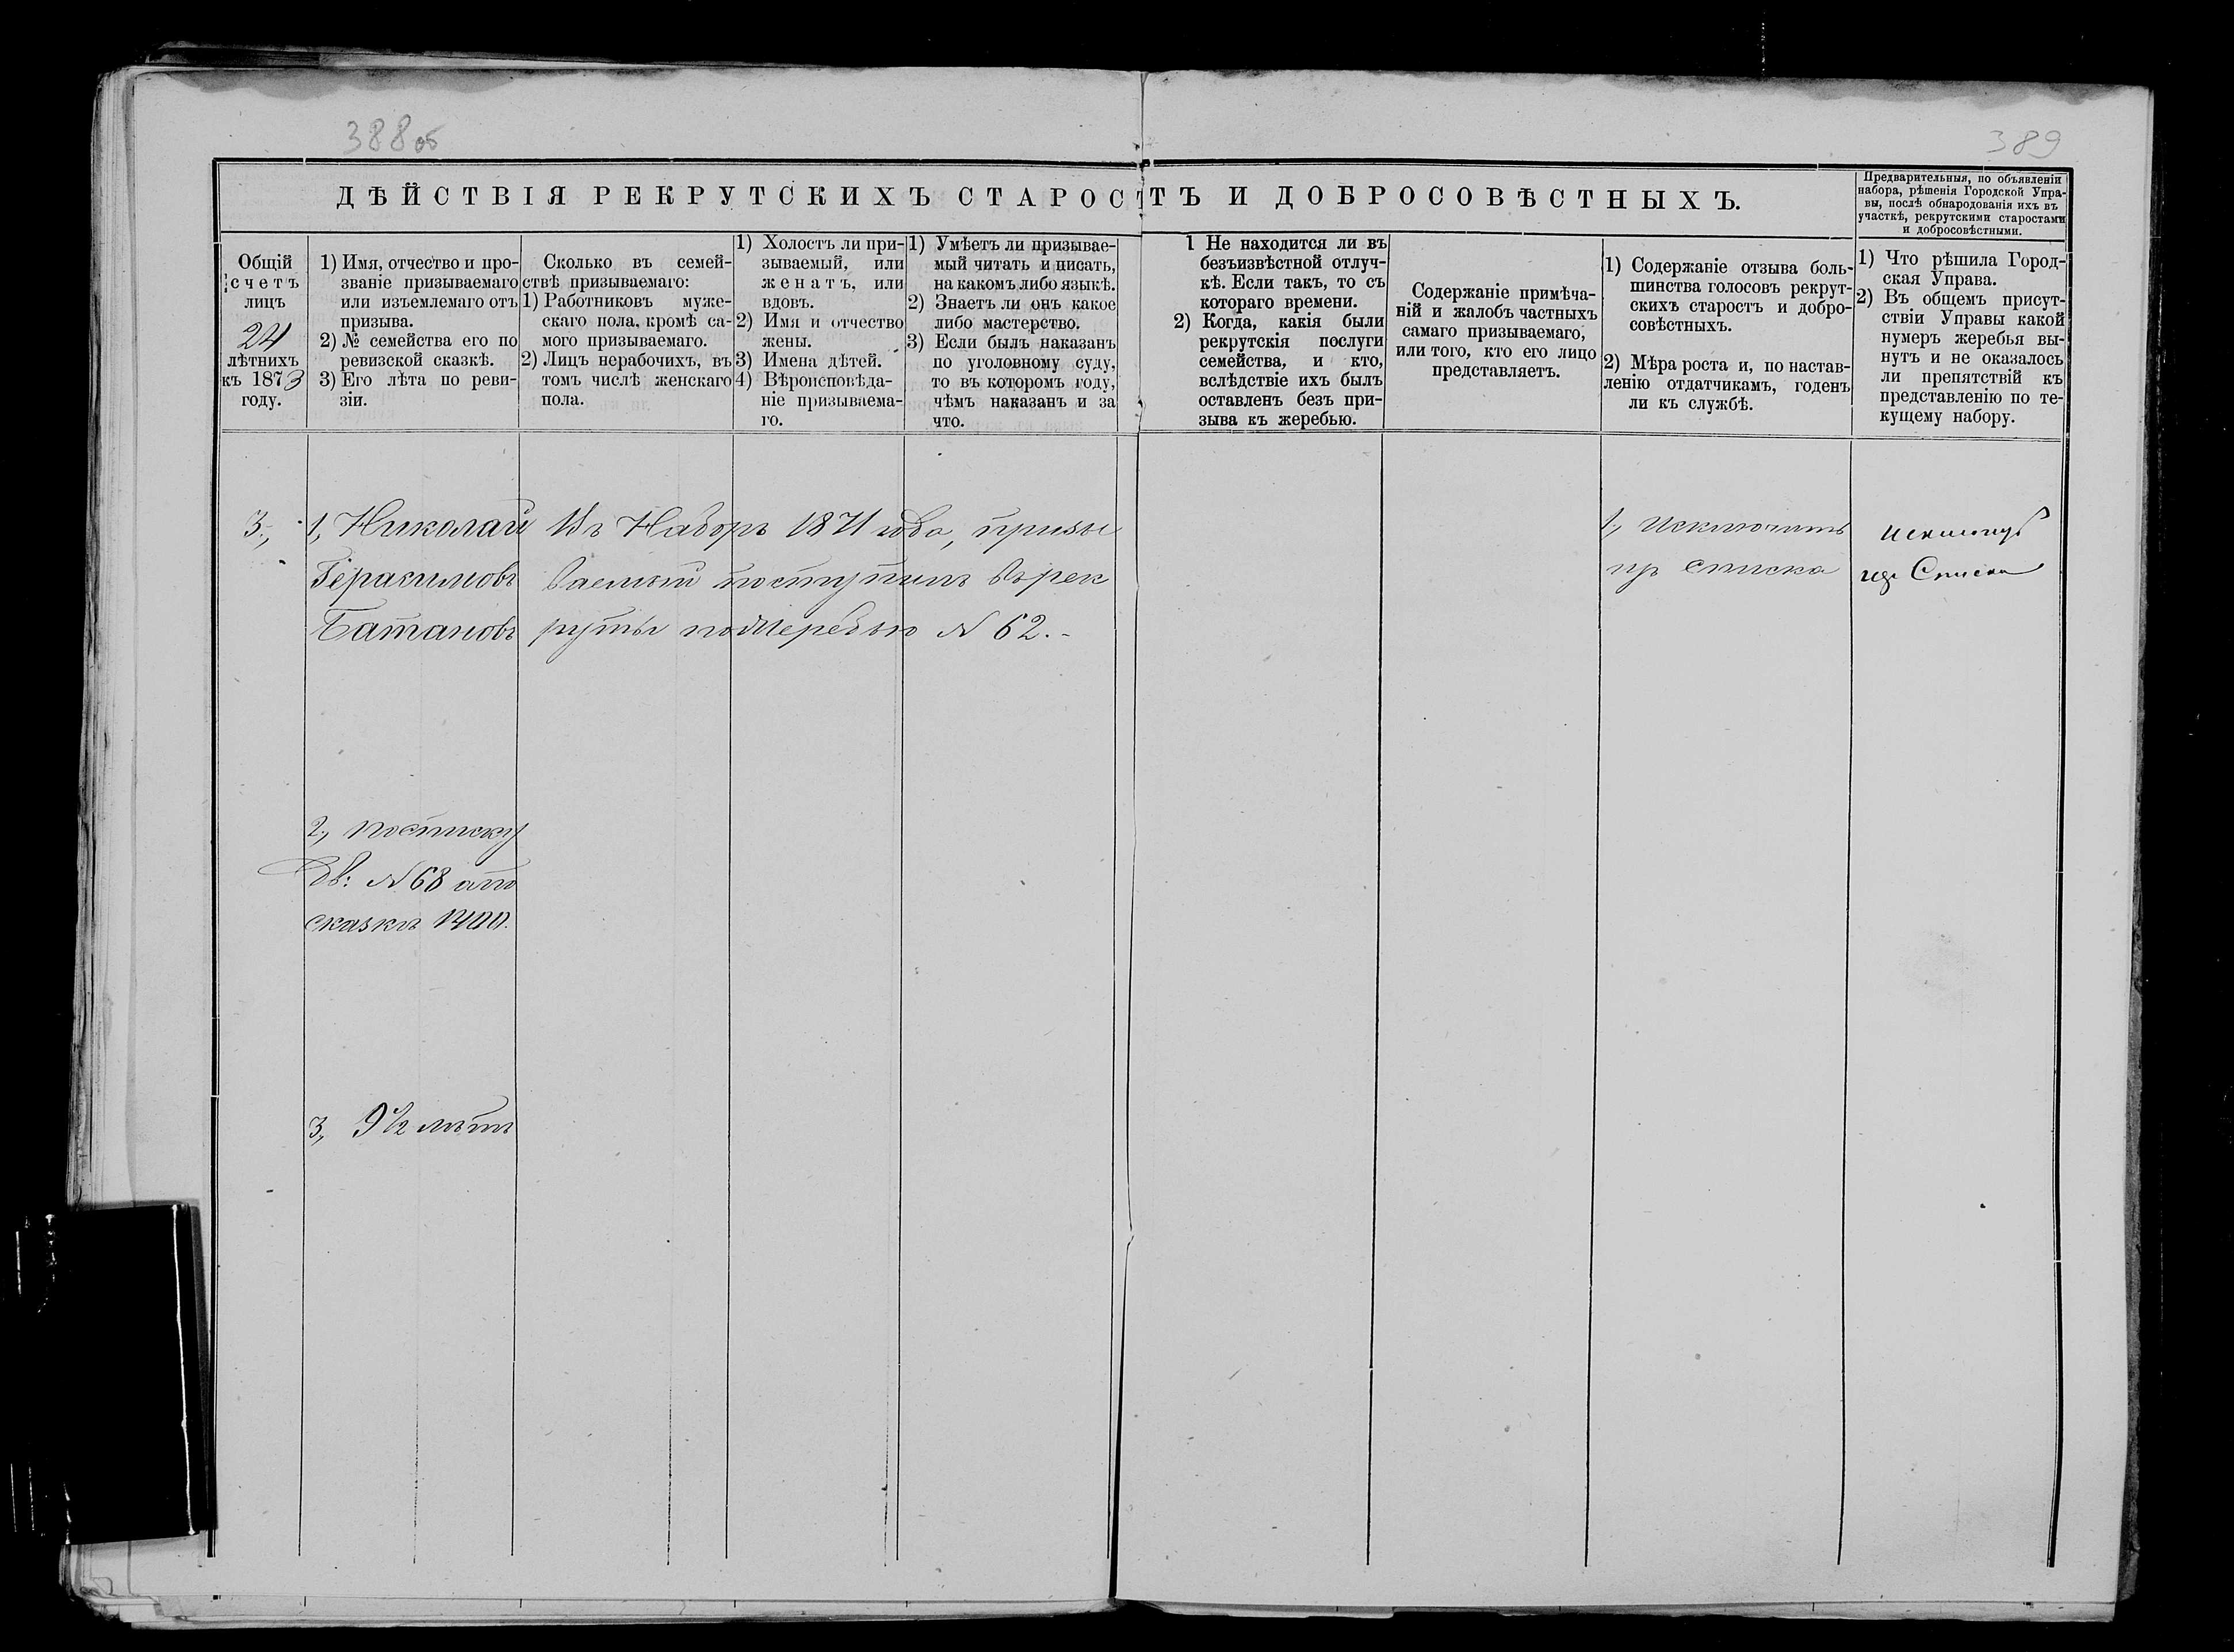 388об
389
ДѢЙСТВІЯ РЕКРУТСКИХЪ СТАРОСТЪ И ДОБРОСОВѢСТНЫХЪ.
Предварительныя, по объявленіи
набора, рѣшенія Городской Упра-
вы, послѣ обнародованія ихъ въ
участкѣ, рекрутскими старостами
и добросовѣстными.
Общій
счетъ
лицъ
24
лѣтнихъ
къ 1873
году.
1) Имя, отчество и про-
званіе призываемаго
или изъемлемаго отъ
призыва.
2) № семейства его по
ревизской сказкѣ.
3) Его лѣта по реви-
зіи.
Сколько въ семей-
ствѣ призываемаго:
1) Работниковъ муже-
скаго пола, кромѣ са-
мого призываемаго.
2) Лицъ нерабочихъ, въ
томъ числѣ женскаго
пола.
1) Холостъ ли при-
зываемый, или
женатъ, или
вдовъ.
2) Имя и отчество
жены.
3) Имена дѣтей.
4) Вѣроисповѣда-
ніе призываема-
го.
1) Умѣетъ ли призывае-
мый читать и писать,
на какомъ либо языкѣ.
2) Знаетъ ли онъ какое
либо мастерство.
3) Если былъ наказанъ
по уголовному суду,
то въ которомъ году,
чѣмъ наказанъ и за
что.
1 Не находится ли въ
безъизвѣстной отлуч-
кѣ. Если такъ, то съ
котораго времени.
2) Когда, какія были
рекрутскія послуги
семейства, и кто,
вслѣдствіе ихъ былъ
оставленъ безъ при-
зыва къ жеребью.
Содержаніе примѣча-
ній и жалобъ частныхъ
самаго призываемаго,
или того, кто его лицо
представляетъ.
1) Содержаніе отзыва боль-
шинства голосовъ рекрут-
скихъ старостъ и добро-
совѣстныхъ.
2) Мѣра роста и, по настав-
ленію отдатчикамъ, годенъ
ли къ службѣ.
1) Что рѣшила Город-
ская Управа.
2) Въ общемъ присут-
ствіи Управы какой
нумеръ жеребья вы-
нутъ и не оказалось
ли препятствій къ
представленію по те-
кущему набору.
3., 1, Николай
Герасимовъ
Батановъ
Въ Наборъ 1871 года, призы
ваемый поступилъ въ рек
руты по Жеребью № 62.-
1., Исключить
изъ списка
Исключить
изъ Списка
2., по списку
Дв: № 68 а по
сказкѣ 1400.
3, 9½ лѣтъ